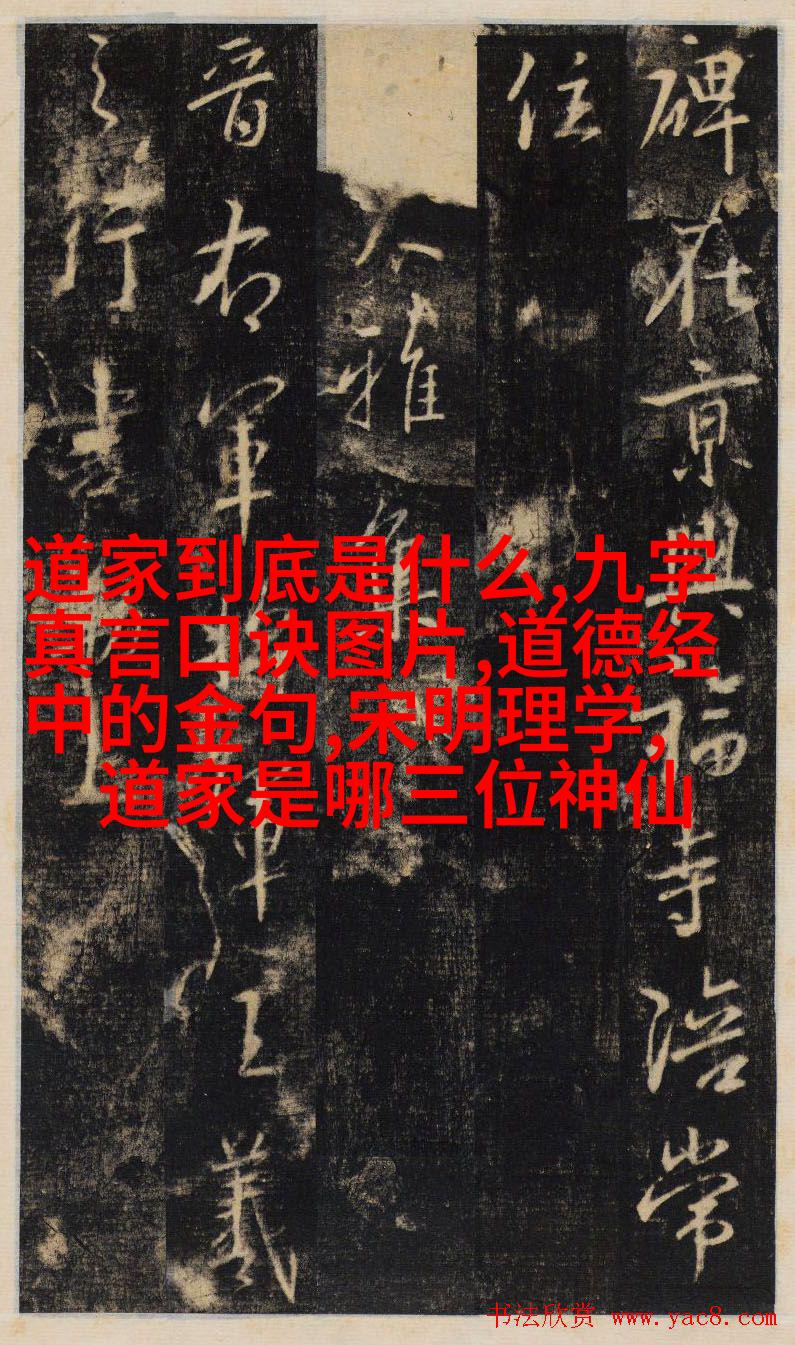 碑在京興福寺陪常
住
大雅集
晉右軍將軍王羲
之行書
道家到底是什么,九字
真言口诀图片,道德经
中的金句,宋明理学,
道家是哪三位神仙
书法欣赏 www.yac8.com